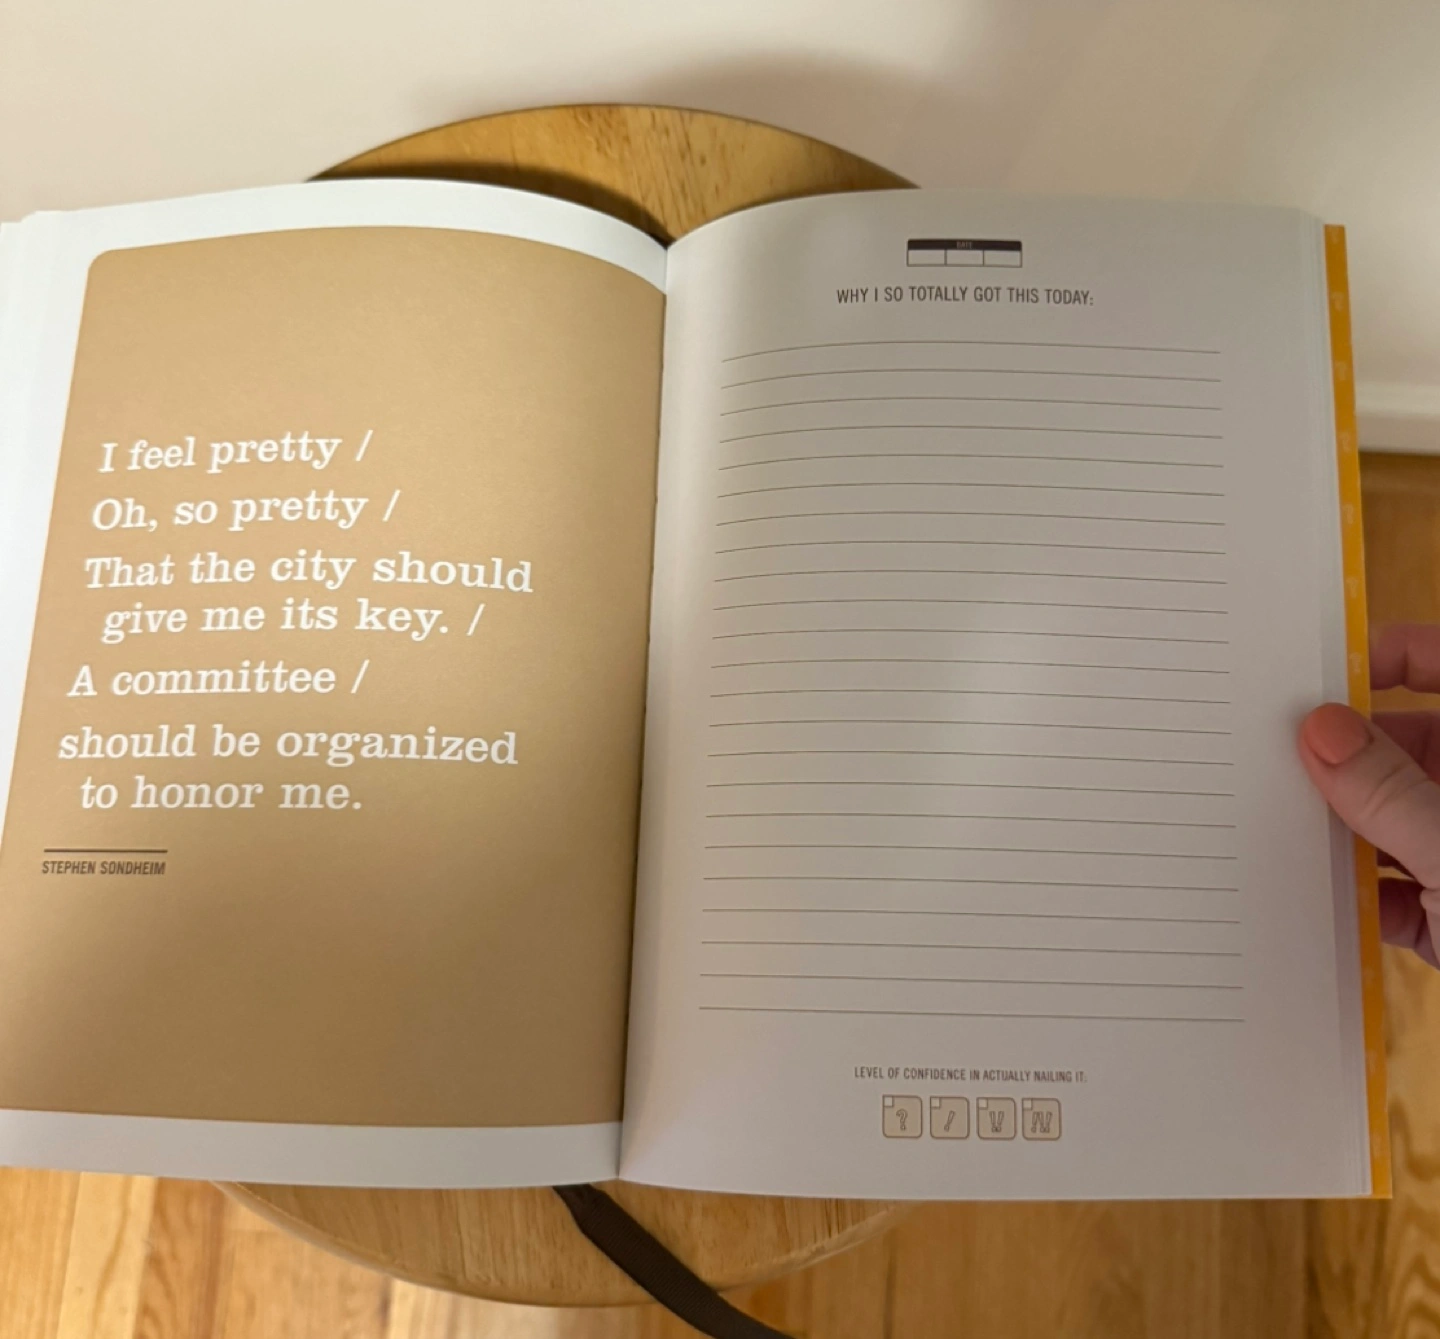 I feel pretty /
Oh, so pretty /
That the city should
give me its key. /
A committee /
should be organized
to honor me.
STEPHEN SONDHEIM
DATE
WHY I SO TOTALLY GOT THIS TODAY:
LEVEL OF CONFIDENCE IN ACTUALLY NAILING IT:
? ! !! !!!